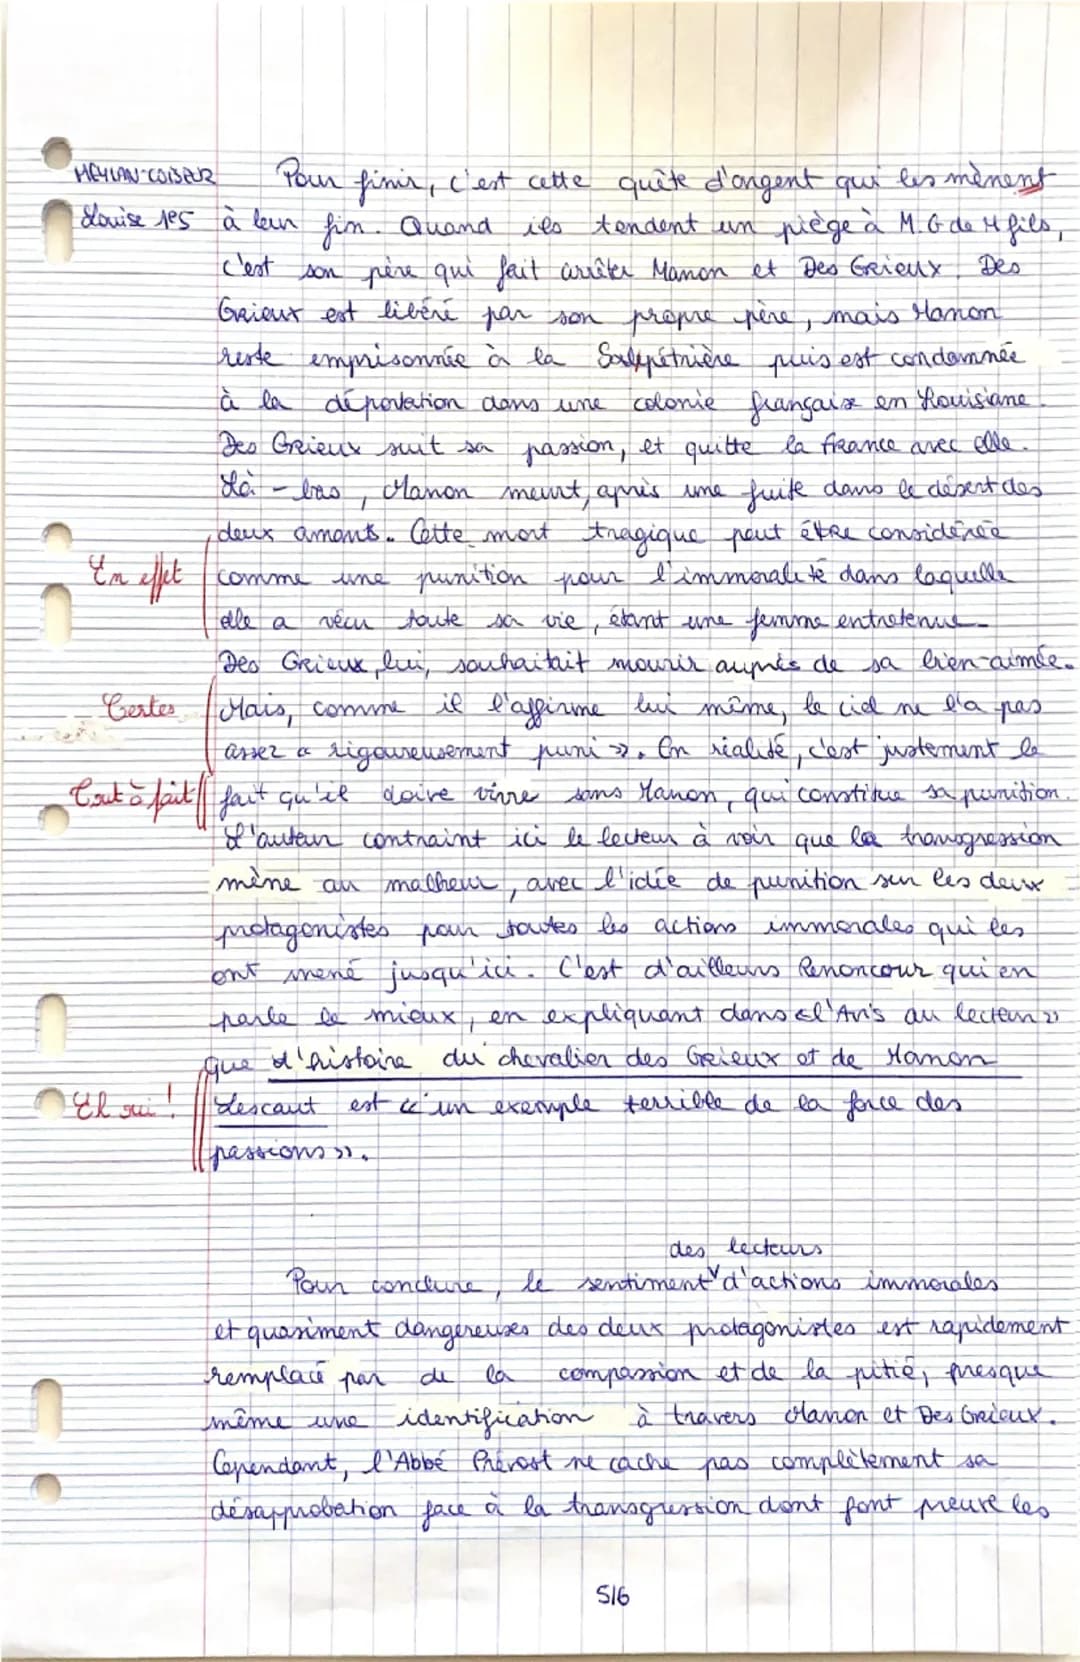 MEYLAN-COISEUR
Louise 1e5
Pour finir, c'est cette quête d'argent qui les mènent
à leur fin. Quand ils tendent un piège à M. G de M fils,
c'est son père qui fait arrêter Manon et Des Grieux. Des
Grieux est libéré par son propre père, mais Manon
reste emprisonnée à la Salpêtrière puis est condamnée
à la déportation dans une colonie française en Louisiane.
Des Grieux suit sa passion, et quitte la France avec elle.
Là-bas, Manon meurt, après une fuite dans le désert des
deux amants. Cette mort tragique peut être considérée
En effet
comme une punition pour l'immoralité dans laquelle
elle a vécu toute sa vie, étant une femme entretenue.
Des Grieux, lui, souhaitait mourir auprès de sa bien-aimée.
Certes
Mais, comme il l'affirme lui même, le ciel ne l'a pas
assez « rigoureusement puni ». En réalité, c'est justement le
Tout à fait
fait qu'il doive vivre sans Manon, qui constitue sa punition.
L'auteur contraint ici le lecteur à voir que la transgression
mène au malheur, avec l'idée de punition sur les deux
protagonistes pour toutes les actions immorales qui les
ont mené jusqu'ici. C'est d'ailleurs Renoncour qui en
parle le mieux, en expliquant dans « l'Avis au lecteur »
que l'histoire du chevalier des Grieux et de Manon
Eh oui !
Lescaut est « un exemple terrible de la force des
passions ».
des lecteurs
Pour conclure, le sentiment d'actions immorales
et quasiment dangereuses des deux protagonistes est rapidement
remplacé par de la compassion et de la pitié, presque
même une identification à travers Manon et Des Grieux.
Cependant, l'Abbé Prévost ne cache pas complètement sa
désapprobation face à la transgression dont font preuve les
5/6